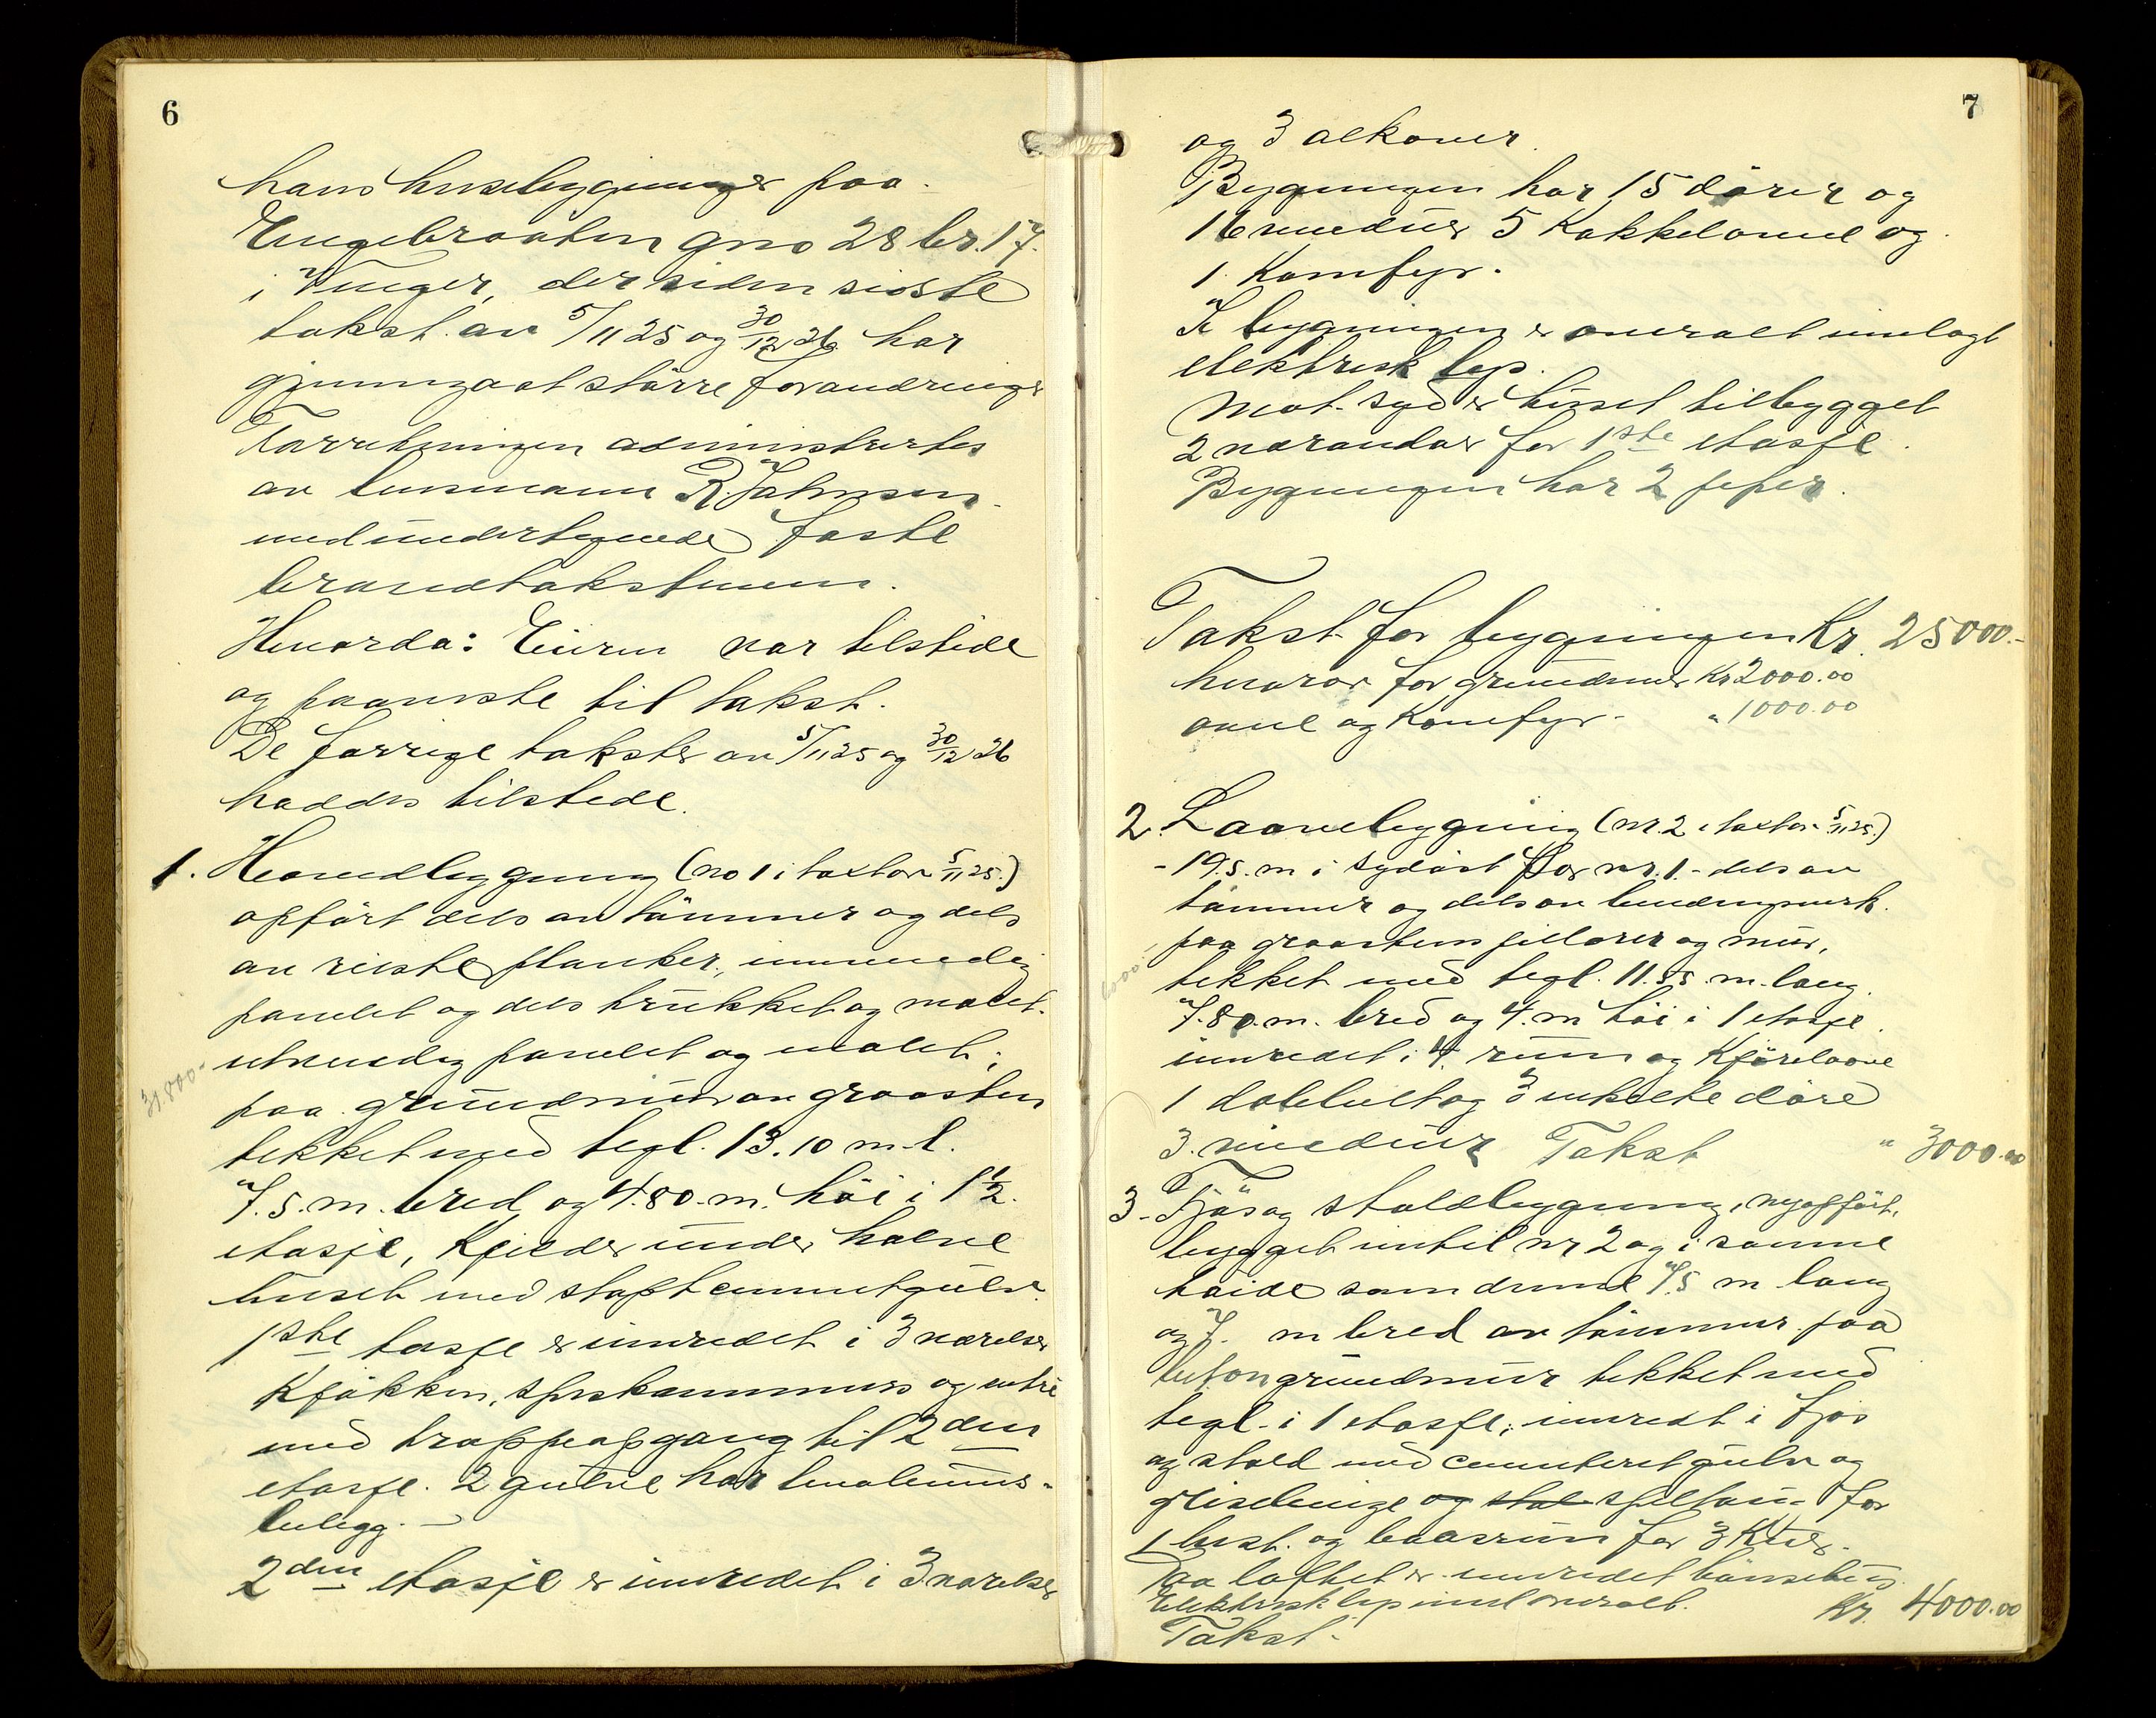 6
hans husebygninger paa
Engebraaten gno 28 br. 17.
i Vinger, der siden sidste
takst av 5/11 25 og 30/12 26 har
gjennegaat større forandringer
Forretningen administrertes
av lensmann R Johnsen
med undertegnede faste
brandtakstmenn.
Hvorda: Eieren var tilstede
og paaviste til takst.
De forrige takster av 5/11 25 og 30/12 26
haddes tilstede.
1. Hovedbygning (no 1 i taxt av 5/11 25.)
opført dels av tømmer og dels
av reiste planker, innvendig
panelet og dels trukket og malet.
utvendig panelet og malet;
31.800-
paa grundmur av graasten
tekket med tegl. 13.10 m. l.
7.5. m. bred og 4.80. m. høi i 1 1/2.
etasje, Kjelder under halve
huset med støpt cementgulv.
1ste etasje er innredet i 3 værelser
Kjøkken, spiskammers og entre
med trappeopgang til 2den
etasje. 2 gulve har linoleums-
belegg.
2den etasje er innredet i 3 værelser
7
og 3 alkover.
Bygningen har 15 dører og
16 vinduer 5 Kakkelovne og
1 Komfyr.
I bygningen er overalt innlagt
elektrisk lys.
Mot syd er huset tilbygget
2 verandaer for 1ste etasje.
Bygningen har 2 piper.
Takst for bygningen Kr. 25000.-
hvorav for grundmur Kr 2000.00
ovne og Komfyr - " 1000.00
2. Laavebygning (nr. 2 i taxt av 5/11 25.)
- 19.5. m i sydøst for nr. 1. - dels av
tømmer og dels av bindingsverk.
paa graastens pillarer og mur,
6000.-
tekket med tegl. 11.55. m. lang.
7.80. m. bred og 4. m høi i 1 etasje.
innredet i 4. rum og Kjørelaave
1 dobbelt og 3 enkelte døre
3. vinduer Takst " 3000.00
3- Fjøs og staldbygning, nyopført,
bygget inntil nr 2 og i samme
høide som denne 7.5 m. lang
og 7. m bred av tømmer paa
beton grundmur tekket med
tegl. i 1 etasje; innredt i fjøs
og stald med cementeret gulv og
grisebinge og stal spiltau- for
1 hest. og baasrum for 3 Kuer.
Paa loftet er innredet hønsehus
Elektrisk lys innl overalt. Kr. 4000.00
Takst-